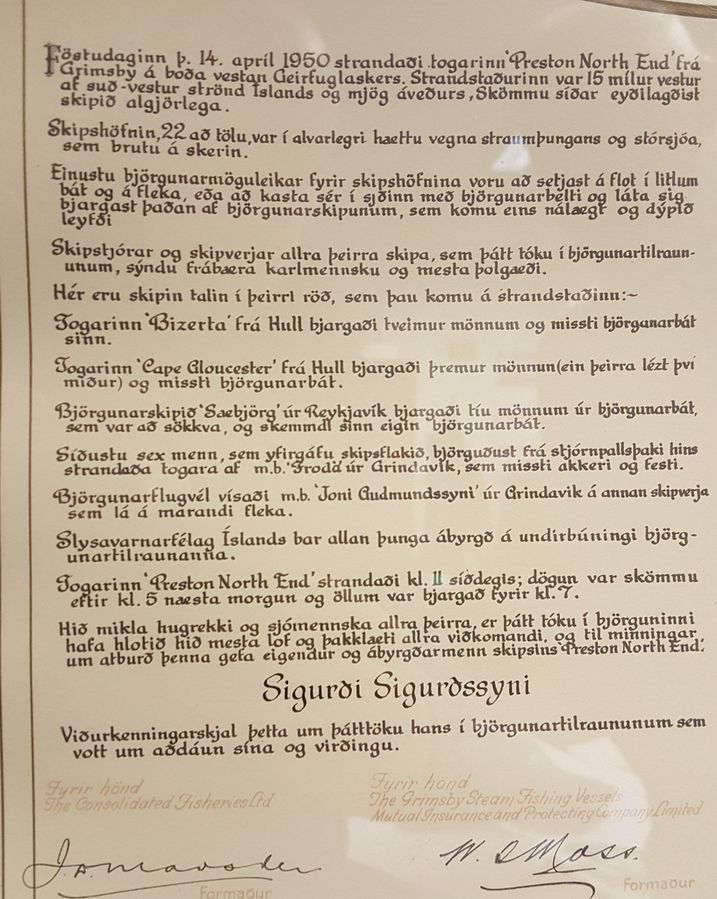 Föstudaginn þ. 14. apríl 1950 strandaði togarinn 'Preston North End' frá
Grimsby á boða vestan Geirfuglaskers. Strandstaðurinn var 15 mílur vestur
af suð-vestur strönd Íslands og mjög áveðurs, Skömmu síðar eyðilagðist
skipið algjörlega.
Skipshöfnin, 22 að tölu, var í alvarlegri haettu vegna straumþungans og stórsjóa,
sem brutu á skerin.
Einustu björgunarmöguleikar fyrir skipshöfnina voru að setjast á flot í litlum
bát og á fleka, eða að kasta sér í sjóinn með björgunarbelti og láta sig
bjargast þaðan af björgunarskipunum, sem komu eins nálaegt og dýpið
leyfði
Skipstjórar og skipverjar allra þeirra skipa, sem þátt tóku í björgunartilraun-
unum, sýndu frábaera karlmennsku og mesta þolgaeði.
Hér eru skipin talin í þeirri röð, sem þau komu á strandstaðinn:~
Togarinn 'Bizerta' frá Hull bjargaði tveimur mönnum og missti björganarbát
sinn.
Togarinn 'Cape Gloucester' frá Hull bjargaði þremur mönnun (ein þeirra lézt því
miður) og missti björgunarbát.
Björgunarskipið 'Saebjörg' úr Reykjavík bjargaði tíu mönnum úr björgunarbát,
sem var að sökkva, og skemmdi sinn eigin björgunarbát.
Síðustu sex menn, sem yfirgáfu skipsflakið, björguðust frá stjórnpallsþaki hins
strandaða togara af m.b. 'Froda' úr Grindavík, sem missti akkeri og festi.
Björgunarflugvél vísaði m.b. 'Joni Gudmundssyni' úr Grindavik á annan skipverja
sem lá á marandi fleka.
Slysavarnarfélag Íslands bar allan þunga ábyrgð á undirbúningi björg-
unartilraunanna.
Togarinn 'Preston North End' strandaði kl. 11 síðdegis; dögun var skömmu
eftir kl. 5 naesta morgun og öllum var bjargað fyrir kl. 7.
Hið mikla hugrekki og sjómennska allra þeirra, er þátt tóku í björguninni
hafa hlotið hið mesta lof og þakklaeti allra viðkomandi, og til minningar
um atburð þenna gefa eigendur og ábyrgðarmenn skipsins 'Preston North End'.
Sigurði Sigurðssyni
Viðurkenningarskjal þetta um þátttöku hans í björgunartilraununum sem
vott um aðdáun sína og virðingu.
Fyrir hönd
The Consolidated Fisheries Ltd
Fyrir hönd
The Grimsby Steam Fishing Vessels
Mutual Insurance and Protecting Company Limited
Formaður
Formaður